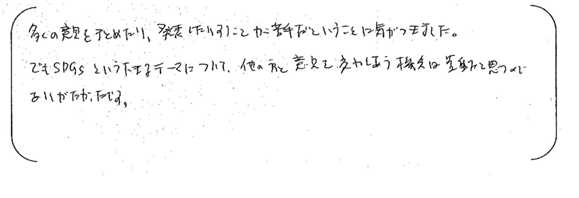 多くの意見をまとめたり、発表したりすることが苦手だということに気がつきました。
でもSDGsという大きなテーマについて、他の方と意見を交わしあう機会は貴重だと思うので
ありがたかったです。